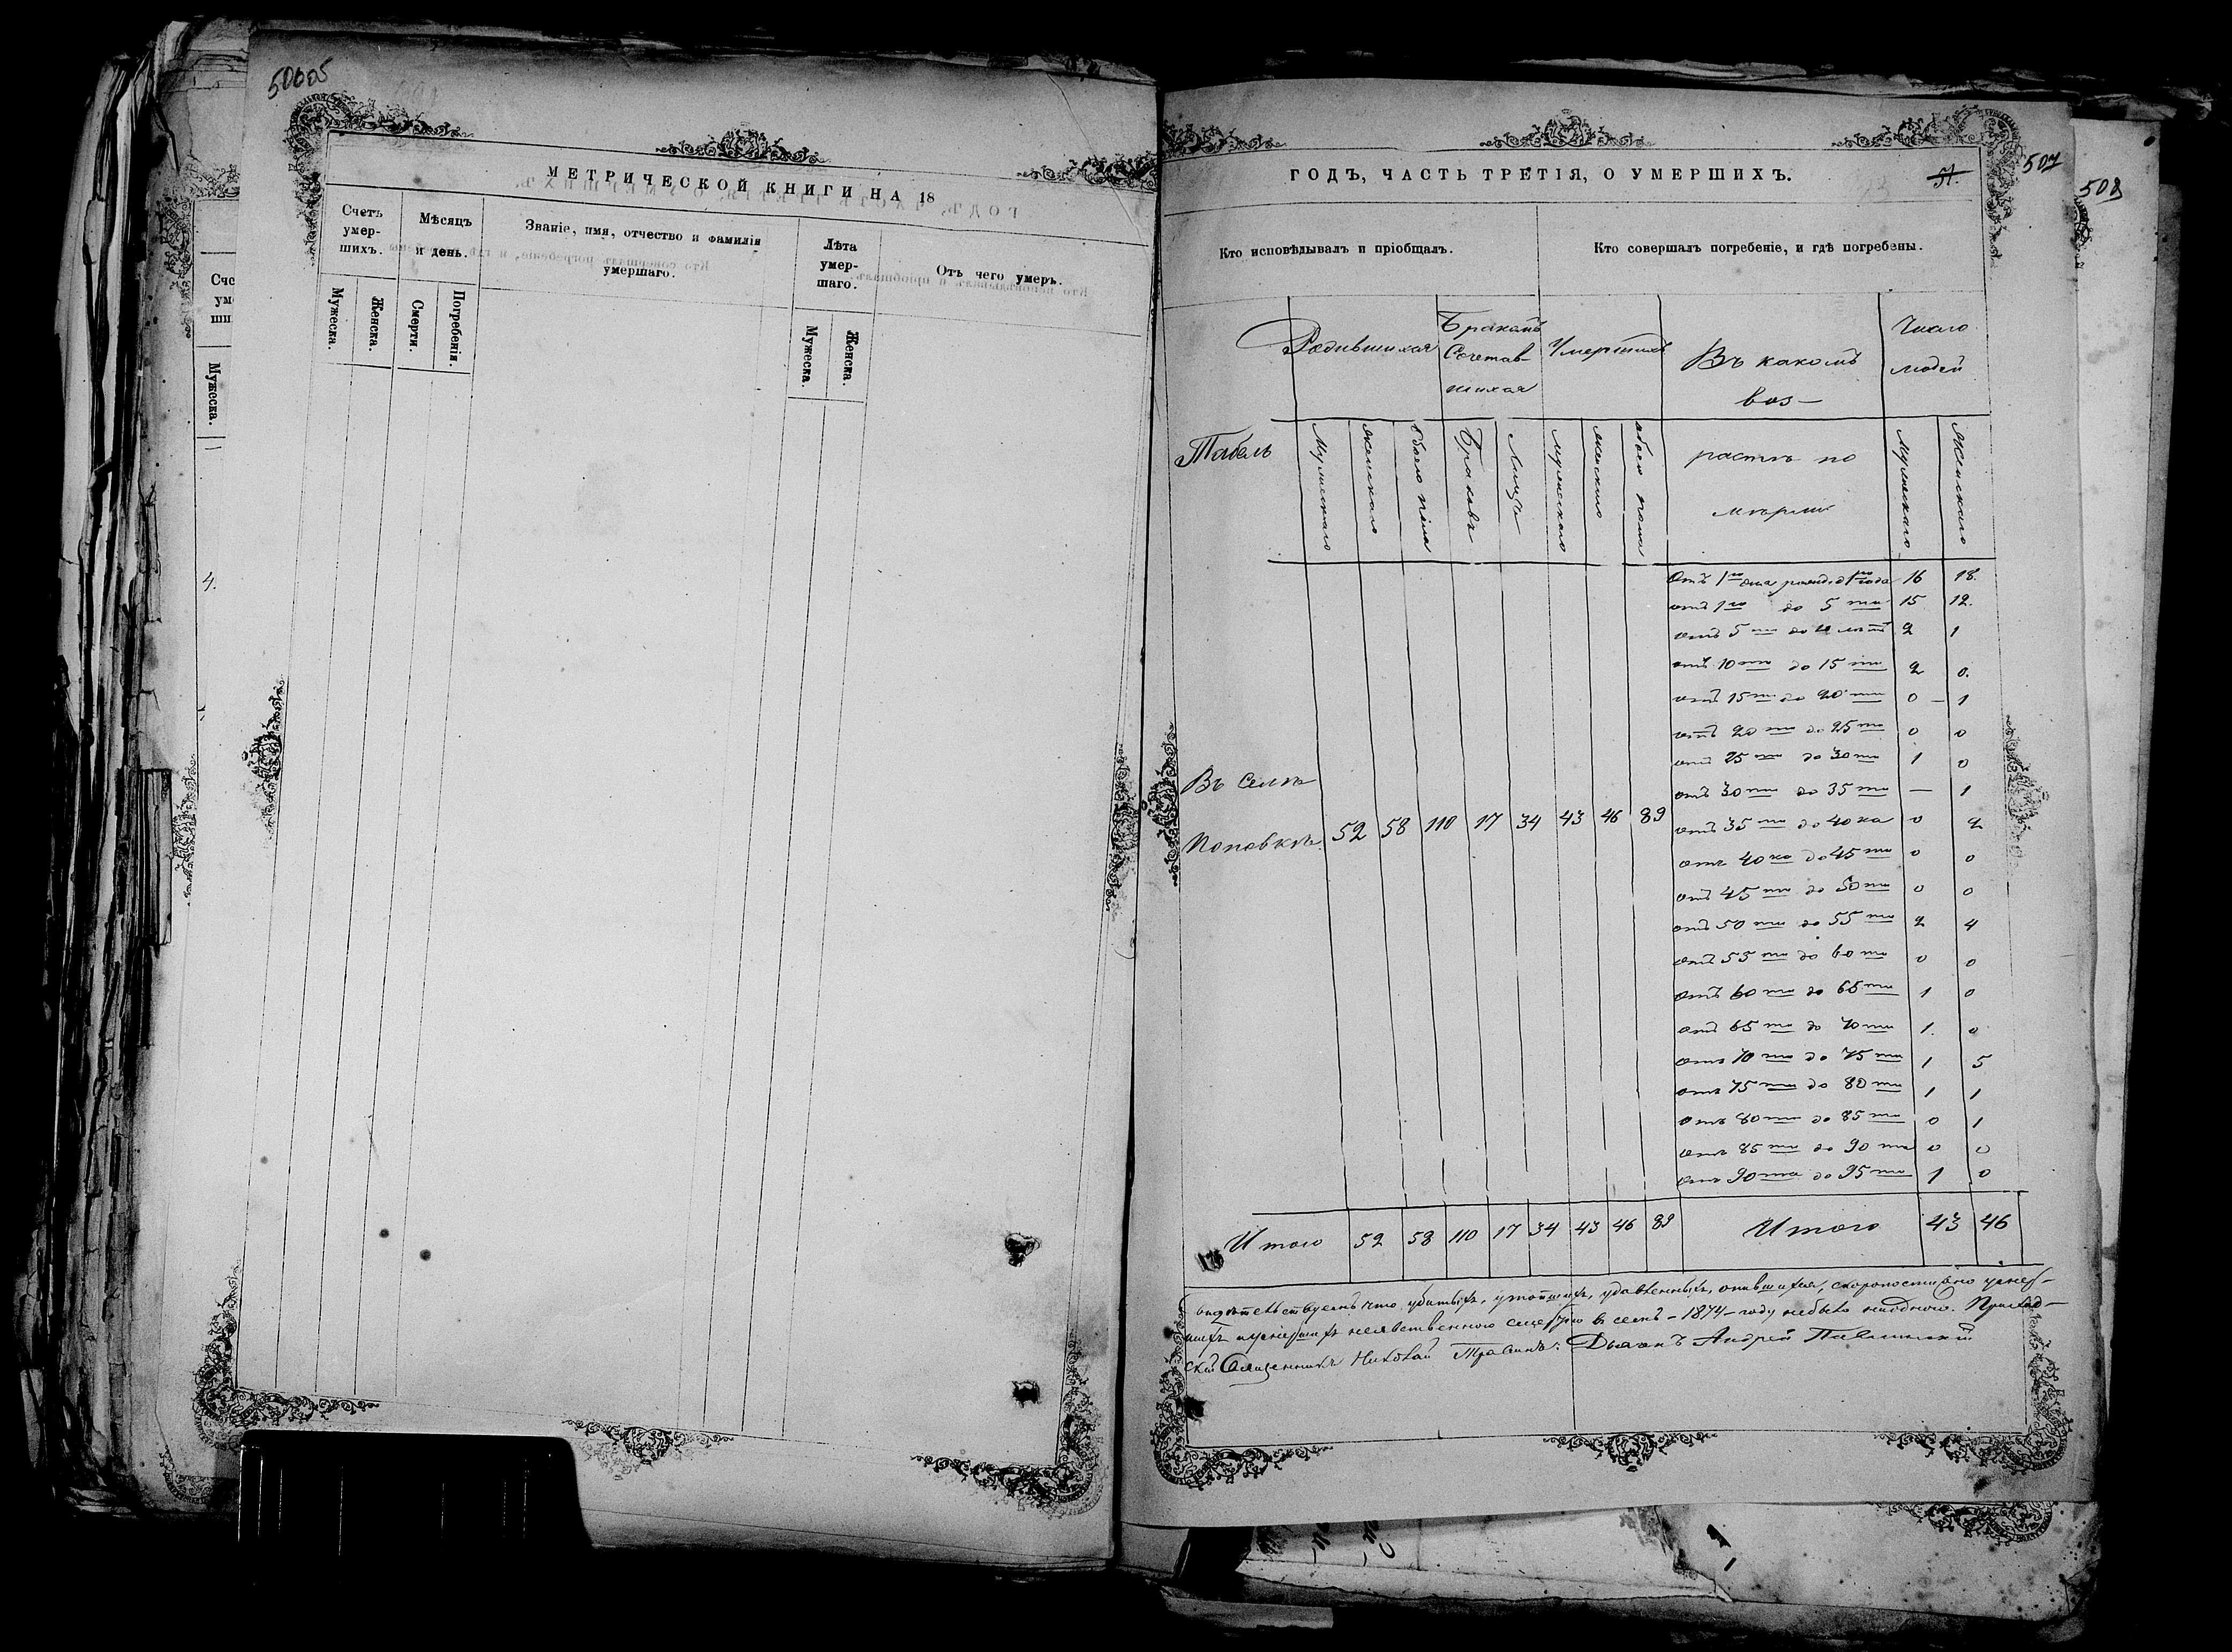 МЕТРИЧЕСКОЙ КНИГИ НА 18
Счетъ умер- шихъ.
Мѣсяцъ и день.
Званіе, имя, отчество и фамилія умершаго.
Лѣта умер- шаго.
Отъ чего умеръ.
Мужеска. Женска. Смерти. Погребенія. Мужеска. Женска.
Мужеска.
4.
ГОДЪ, ЧАСТЬ ТРЕТІЯ, О УМЕРШИХЪ.
51.
507
508
Кто исповѣдывалъ и пріобщалъ.
Кто совершалъ погребеніе, и гдѣ погребены.
Родившихся
Бракомъ Сочетав- шихся
Умершихъ
Въ какомъ воз-
Число людей
Табель
Мужескаго Женскаго Обоего пола Браковъ Лицъ Мужескаго Женскаго обоего пола
растѣ по мерли
Мужескаго Женскаго
отъ 1го до 5 ти 15 12.
отъ 5 ти до 10 лѣтъ 2 1
отъ 10 ти до 15 ти 2 0.
отъ 15 ти до 20 ти 0 — 1
отъ 20 ти до 25 ти 0 0
отъ 25 ти до 30 ти 1 0
отъ 30 ти до 35 ти — 1
отъ 35 ти до 40 ка 0 2
отъ 40 ка до 45 ти 0 0
отъ 45 ти до 50 ти 0 0
отъ 50 ти до 55 ти 2 4
отъ 55 ти до 60 ти 0 0
отъ 60 ти до 65 ти 1 0
отъ 65 ти до 70 ти 1. 0
отъ 70 ти до 75 ти 1 5
отъ 75 ти до 80 ти 1 1
отъ 80 ти до 85 ти 0 1
отъ 85 ти до 90 та 0 0
отъ 90 та до 95 ти 1 0
Въ Селѣ
Поповкѣ. 52 58 110 17 34 43 46 89
Итого 52 58 110 17 34 43 46 89 Итого 43 46
что убитыхъ, утопшихъ, удавленныхъ, опившихся, скоропостижно умер-
шихъ 1874 году небыло ниодного. Приход-
скій Священникъ Николай Діаконъ Андрей